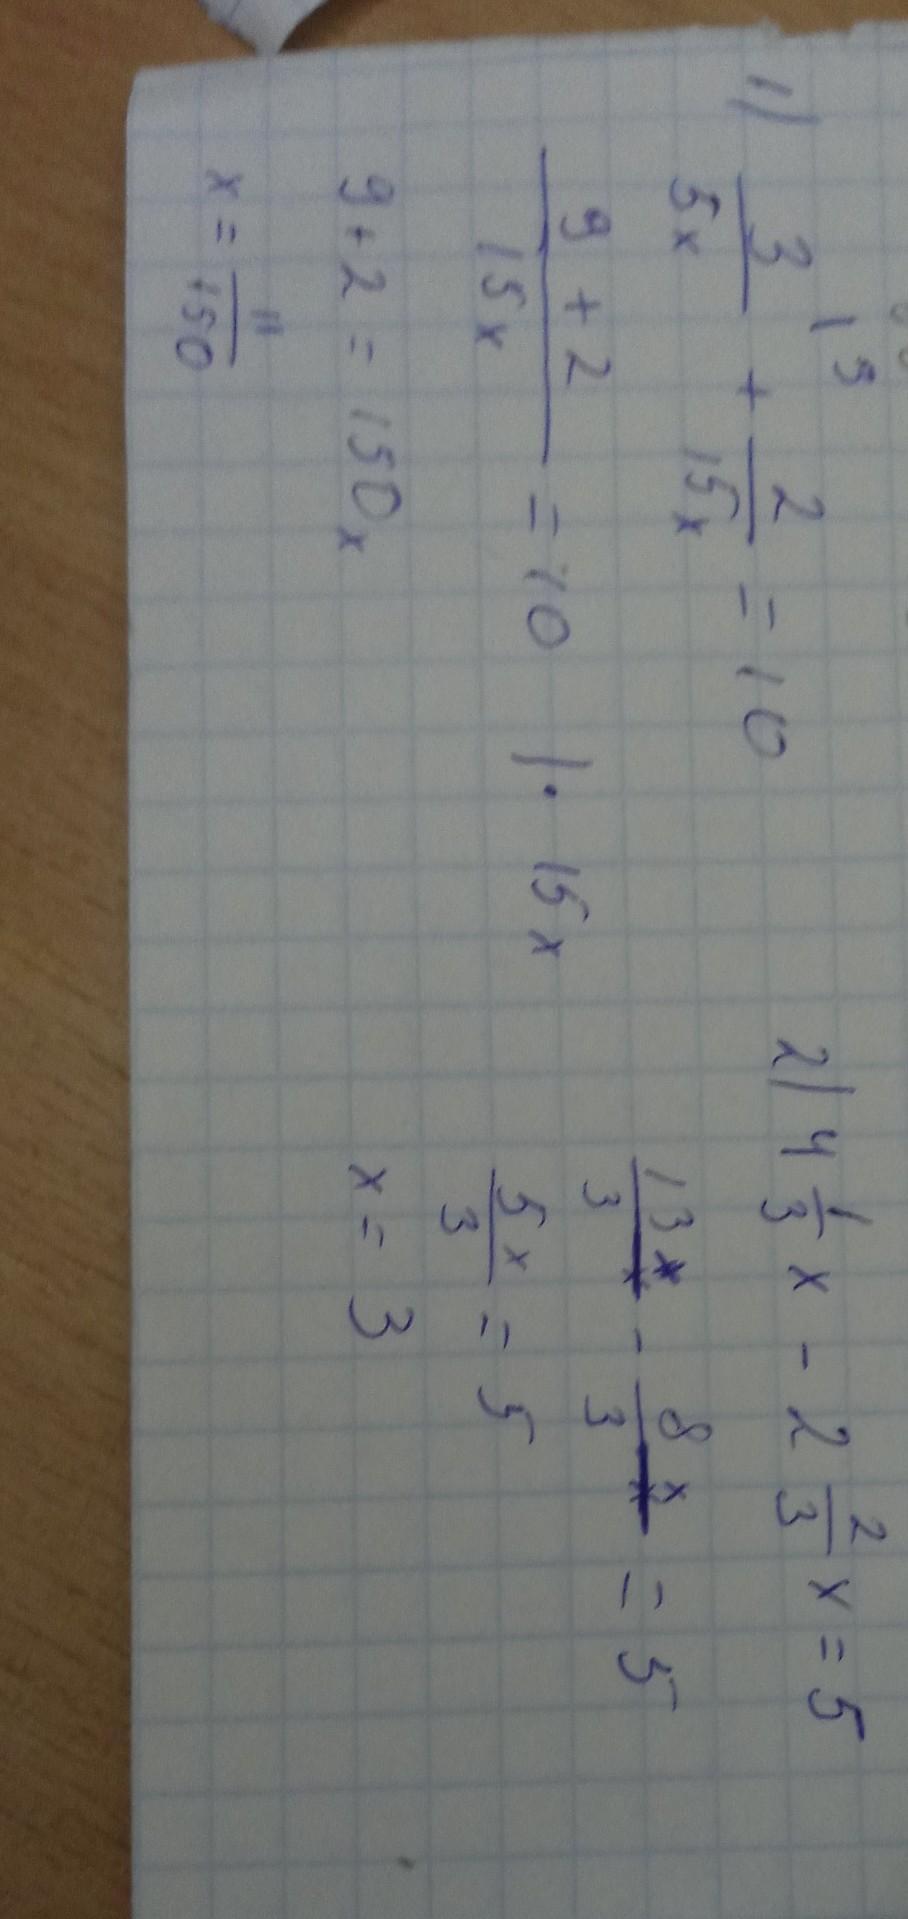 1 5
1) 3/5x + 2/15x = 10
9 + 2/15x = 10 |· 15x
9 + 2 = 150x
x = 11/150
2) 4 1/3 x - 2 2/3 x = 5
13x/3 - 8x/3 = 5
5x/3 = 5
x = 3